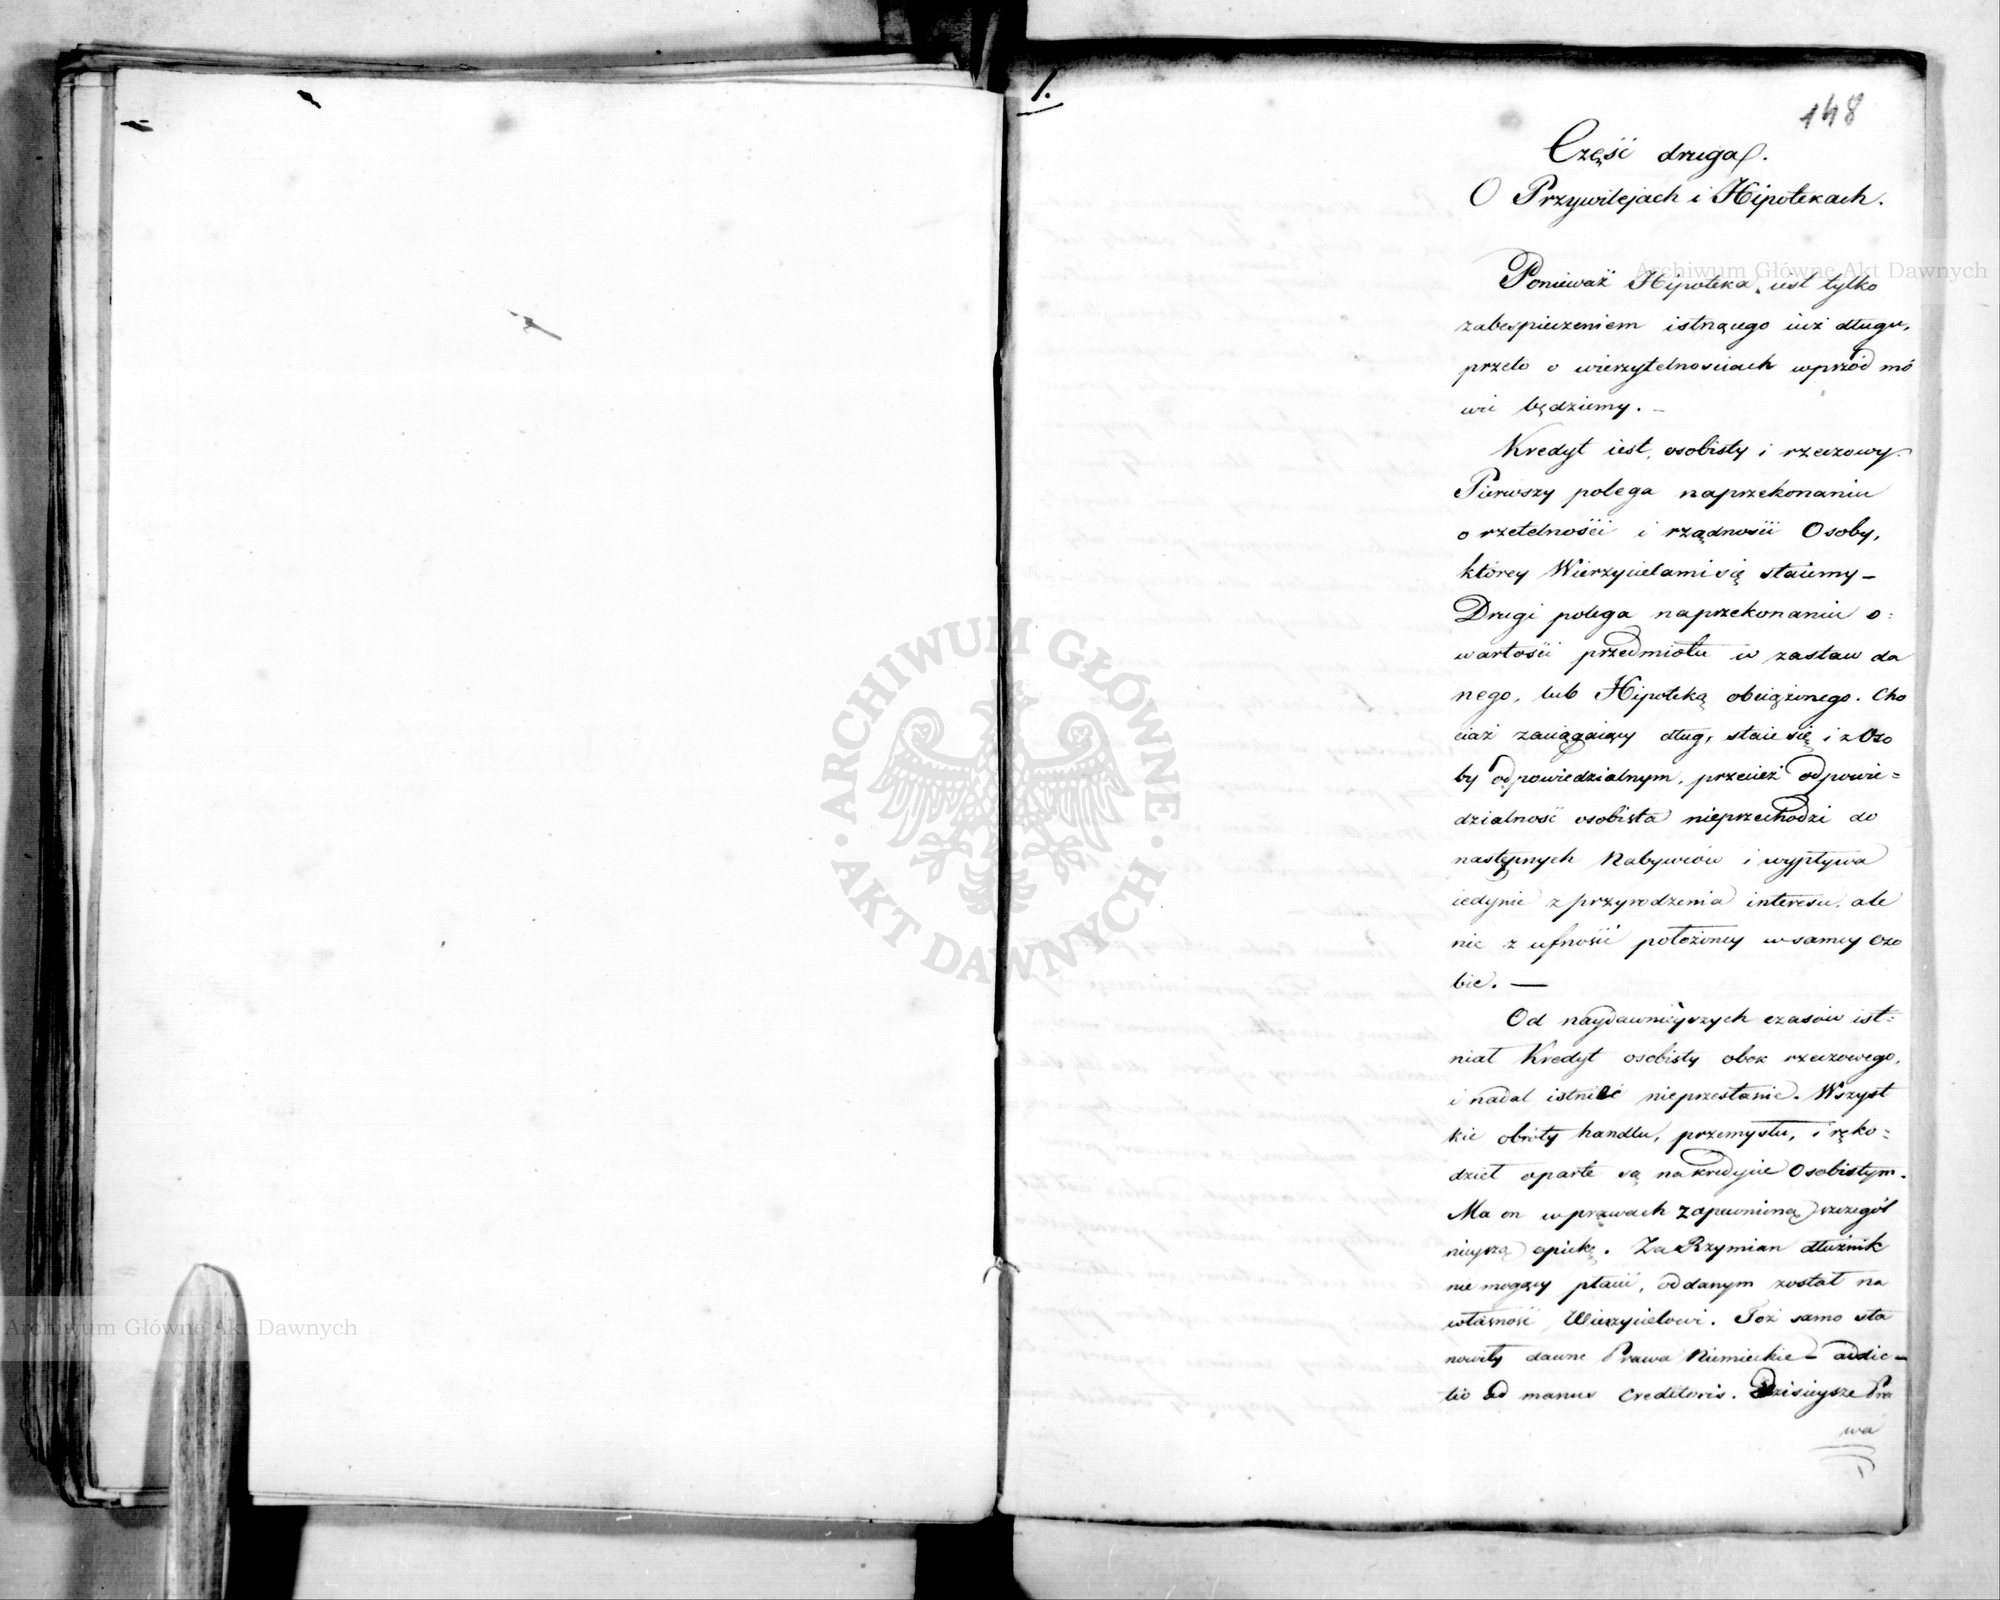 1.
148
Część druga.
O Przywilejach i Hipotekach.
Ponieważ Hipoteka iest tylko
zabespieczeniem istnącego iuż długu,
przeto o wierzytelnościach wprzód mó
wić będziemy. –
Kredyt iest osobisty i rzeczowy.
Pierwszy polega naprzekonaniu
o rzetelności i rządności Osoby,
którey Wierzycielami się staiemy –
Drugi polega naprzekonaniu o
wartości przedmiotu w zastaw da
nego, lub Hipoteką obciążonego. Cho
ciaż zaciągaiący dług, staie się i z Ozo
by odpowiedzialnym, przecież odpowie=
dzialność osobista nieprzechodzi do
następnych Nabywców i wypływa
iedynie z przyrodzenia interesu, ale
nie z ufność położoney w samey Ozo
bie. —
Od naydawnieyszych czasów ist=
niał Kredyt osobisty obok rzeczowego,
i nadal istnieć nieprzestanie. Wszyst
kie obroty handlu, przemysłu, i ręko=
dzieł oparte są na kredycie Osobistym.
Ma on w prawach zapewnioną szczegól
nieyszą opiekę. Za Rzymian dłużnik
nie mogący płacić, oddanym został na
własność Wierzycielowi. Toż samo sta
nowiły dawne Prawa Niemieckie – addic–
tio ad manus Creditoris. Dzisieysze Pra
wa
Archiwum Główne Akt Dawnych
ARCHIWUM GŁÓWNE
AKT DAWNYCH
Archiwum Główne Akt Dawnych